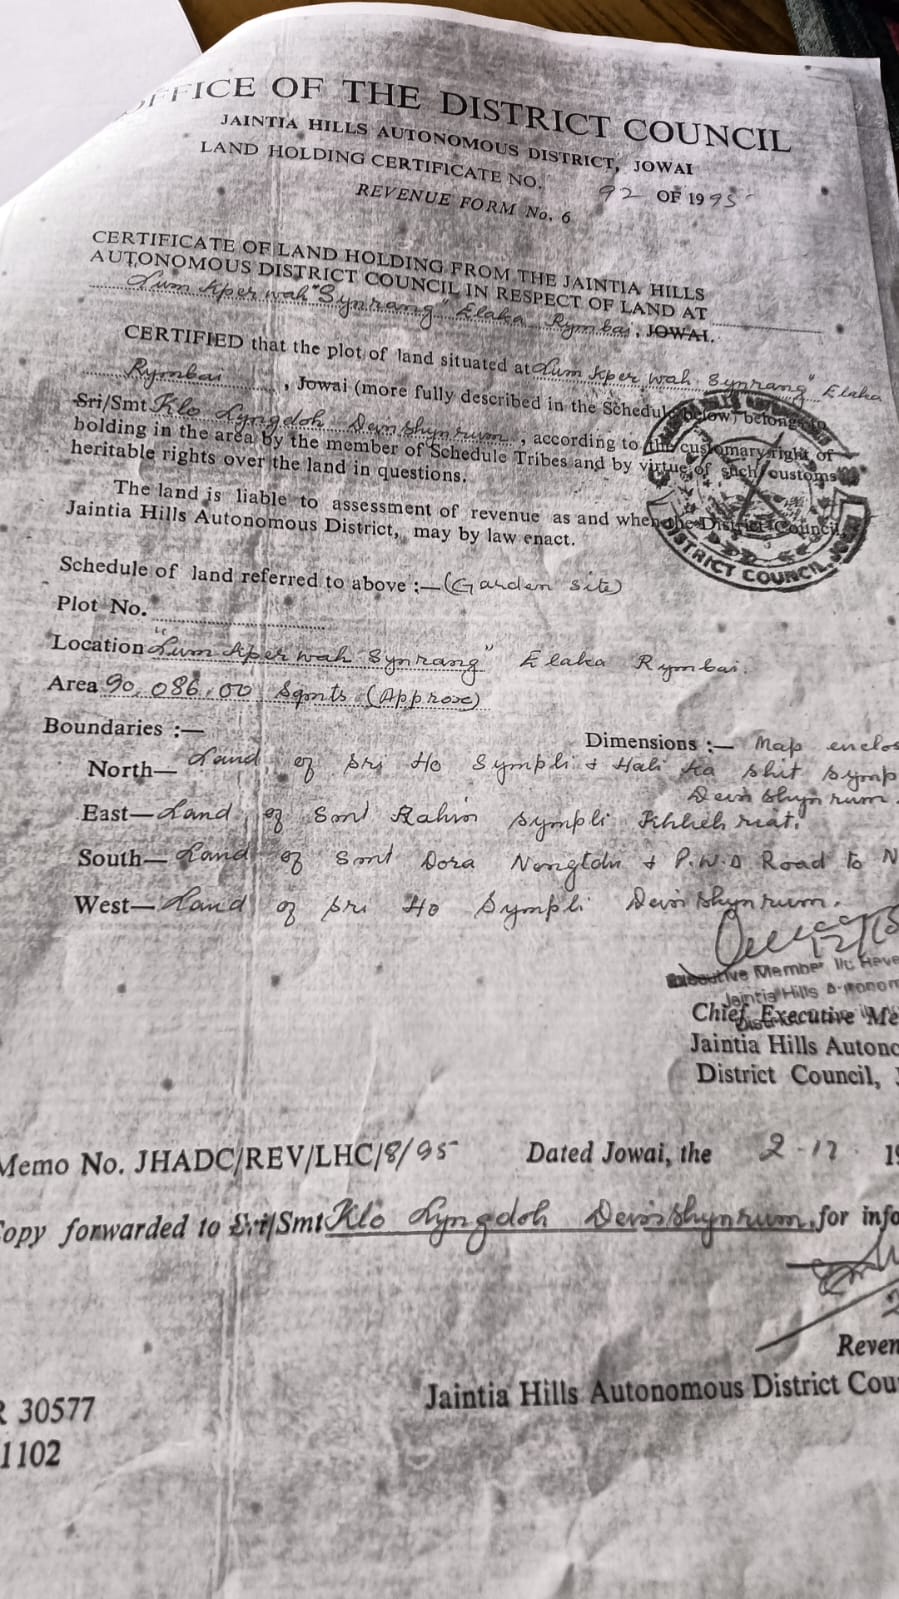 OFFICE OF THE DISTRICT COUNCIL
JAINTIA HILLS AUTONOMOUS DISTRICT, JOWAI
LAND HOLDING CERTIFICATE NO. 92 OF 1995
REVENUE FORM No. 6
CERTIFICATE OF LAND HOLDING FROM THE JAINTIA HILLS
AUTONOMOUS DISTRICT COUNCIL IN RESPECT OF LAND AT
Lum Kper wah "Synrang" Elaka Rymbai, JOWAI.
CERTIFIED that the plot of land situated at Lum Kper wah Synrang" Elaka
Rymbai, Jowai (more fully described in the Schedule below) belongs to
Sri/Smt Klo Lyngdoh Deinshynrum, according to the customary right of
holding in the area by the member of Schedule Tribes and by virtue of such customs
heritable rights over the land in questions.
The land is liable to assessment of revenue as and when the District Council
Jaintia Hills Autonomous District, may by law enact.
Schedule of land referred to above :—(Garden site)
Plot No.
Location "Lum Kper wah Synrang" Elaka Rymbai.
Area 90,086.00 Sqmts (Approx)
Boundaries :— Dimensions :— Map enclos
North— Land of Sri Ho Sympli & Hali ka shit Symp
Deinshynrum.
East—Land of Smt Rahin Sympli Khliehriat.
South—Land of Smt Dora Nongtdu & P.W.D Road to N
West—Land of Sri Ho Sympli Deinshynrum.
Executive Member I/c Reve
Jaintia Hills Autonom
Chief Executive Me
Jaintia Hills Autono
District Council, J
Memo No. JHADC/REV/LHC/8/95 Dated Jowai, the 2-12. 19
Copy forwarded to Sri/Smt Klo Lyngdoh Deinshynrum, for info
2
Reven
Jaintia Hills Autonomous District Cou
R 30577
1102
DISTRICT COUNCIL, JOWAI